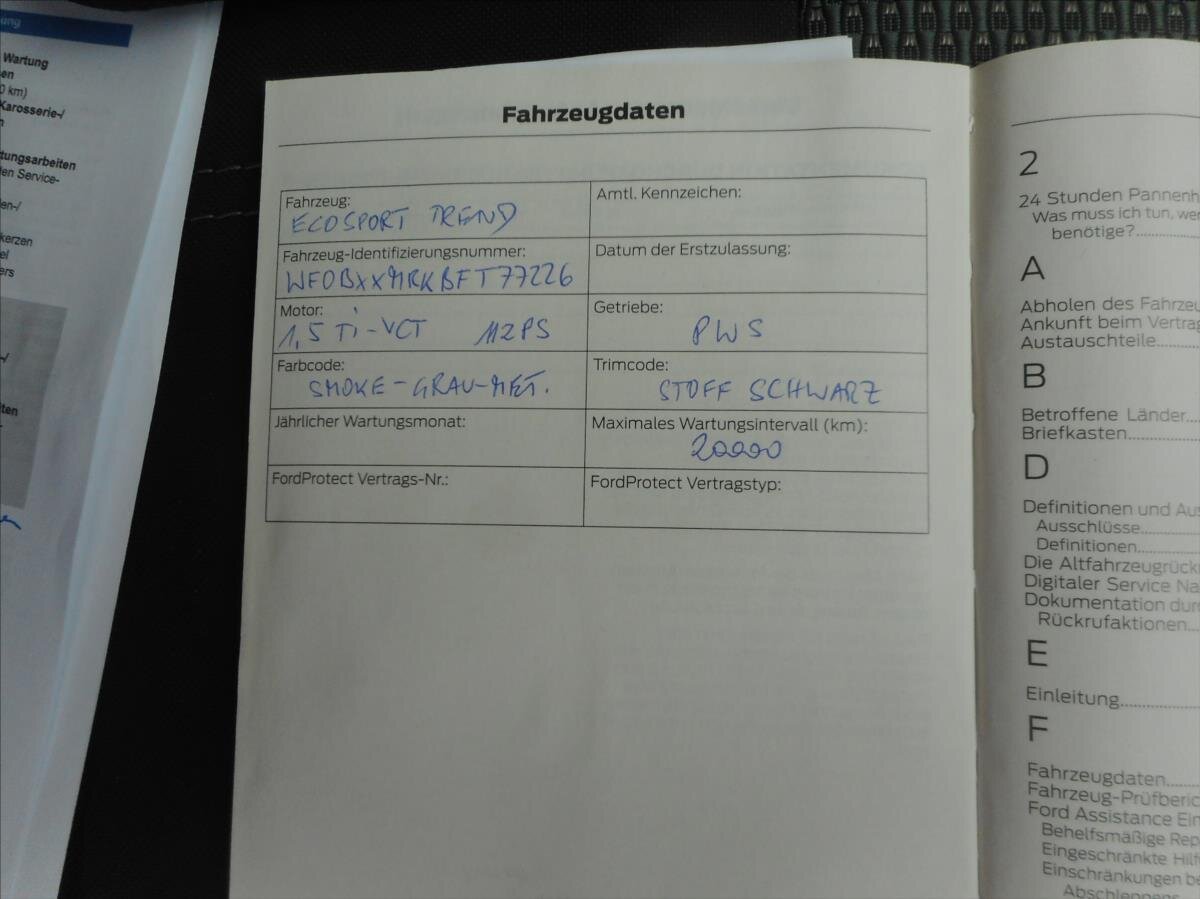 ung
Wartung
en
0 km)
Karosserie-/
tungsarbeiten
den Service-
en-/
kerzen
el
ers
ten
Fahrzeugdaten
Fahrzeug:
ECOSPORT TREND
Amtl. Kennzeichen:
Fahrzeug-Identifizierungsnummer:
WF0BXXMRKBFT77226
Datum der Erstzulassung:
Motor:
1,5 Ti-VCT 112PS
Getriebe:
PWS
Farbcode:
SMOKE-GRAU-MET.
Trimcode:
STOFF SCHWARZ
Jährlicher Wartungsmonat:
Maximales Wartungsintervall (km):
20000
FordProtect Vertrags-Nr.:
FordProtect Vertragstyp:
2
24 Stunden Pannenh
Was muss ich tun, wen
benötige?
A
Abholen des Fahrzeu
Ankunft beim Vertrag
Austauschteile
B
Betroffene Länder
Briefkasten
D
Definitionen und Aus
Ausschlüsse
Definitionen
Die Altfahrzeugrück
Digitaler Service Na
Dokumentation dur
Rückrufaktionen
E
Einleitung
F
Fahrzeugdaten
Fahrzeug-Prüfberic
Ford Assistance Ein
Behelfsmäßige Rep
Eingeschränkte Hilf
Einschränkungen be
Abschleppens